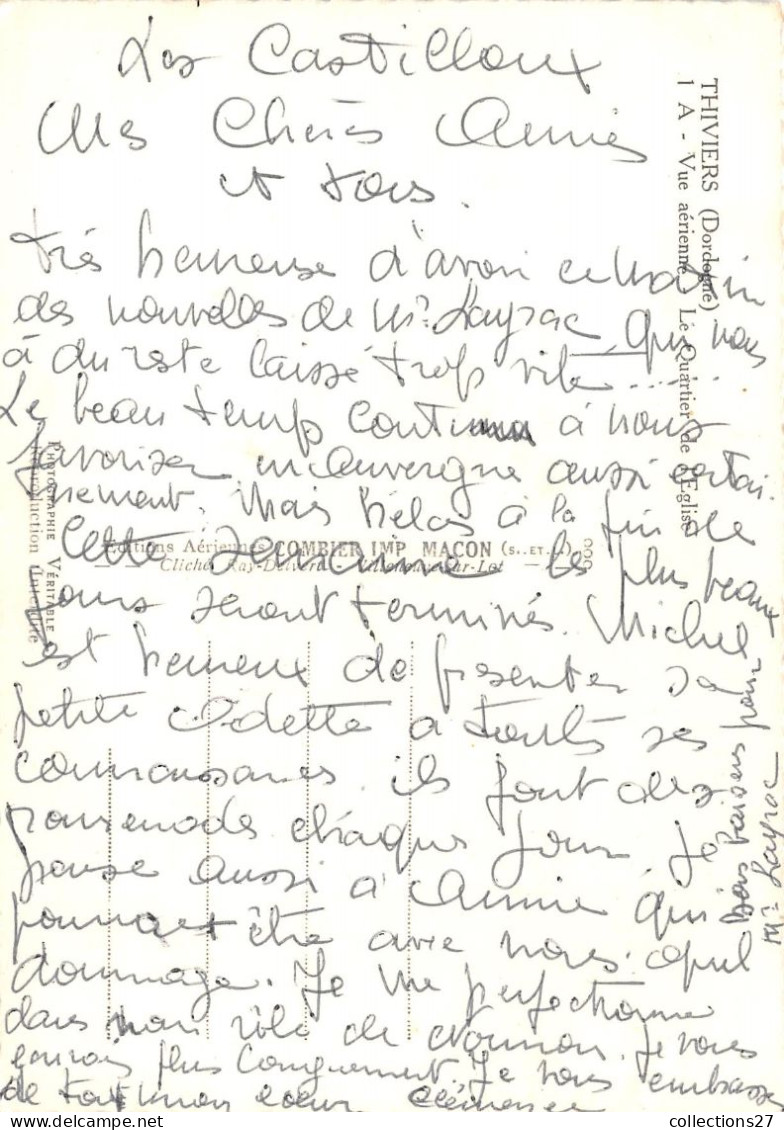 Les Castilloux
Mes Chères Amies
et tous.
très heureuse d'avoir ce matin
des nouvelles de Mme Layrac qui nous
a du reste laissé trop vite.....
Le beau temps continu à nous
favoriser en Auvergne aussi certai-
nement. Mais hélas à la fin de
Cette semaine les plus beaux
jours seront terminés. Michel
est heureux de présenter sa
petite Odette à toutes ses
connaissances. ils font des
promenades chaque jour. je
pense aussi à Annie qui
pourrait être avec nous. quel
dommage. Je me perfectionne
dans mon rôle de
Je vous
plus longuement. Je vous embrasse
de tout mon cœur Clémence
Bons baisers pour
Mme Layrac
THIVIERS (Dordogne)
1 A - Vue aérienne - Le Quartier de l'Eglise
PHOTOGRAPHIE VÉRITABLE
Reproduction interdite
Editions Aériennes COMBIER IMP. MACON (S.-ET-L.)
Cliché Ray-Delvert - Villeneuve-sur-Lot
collections27